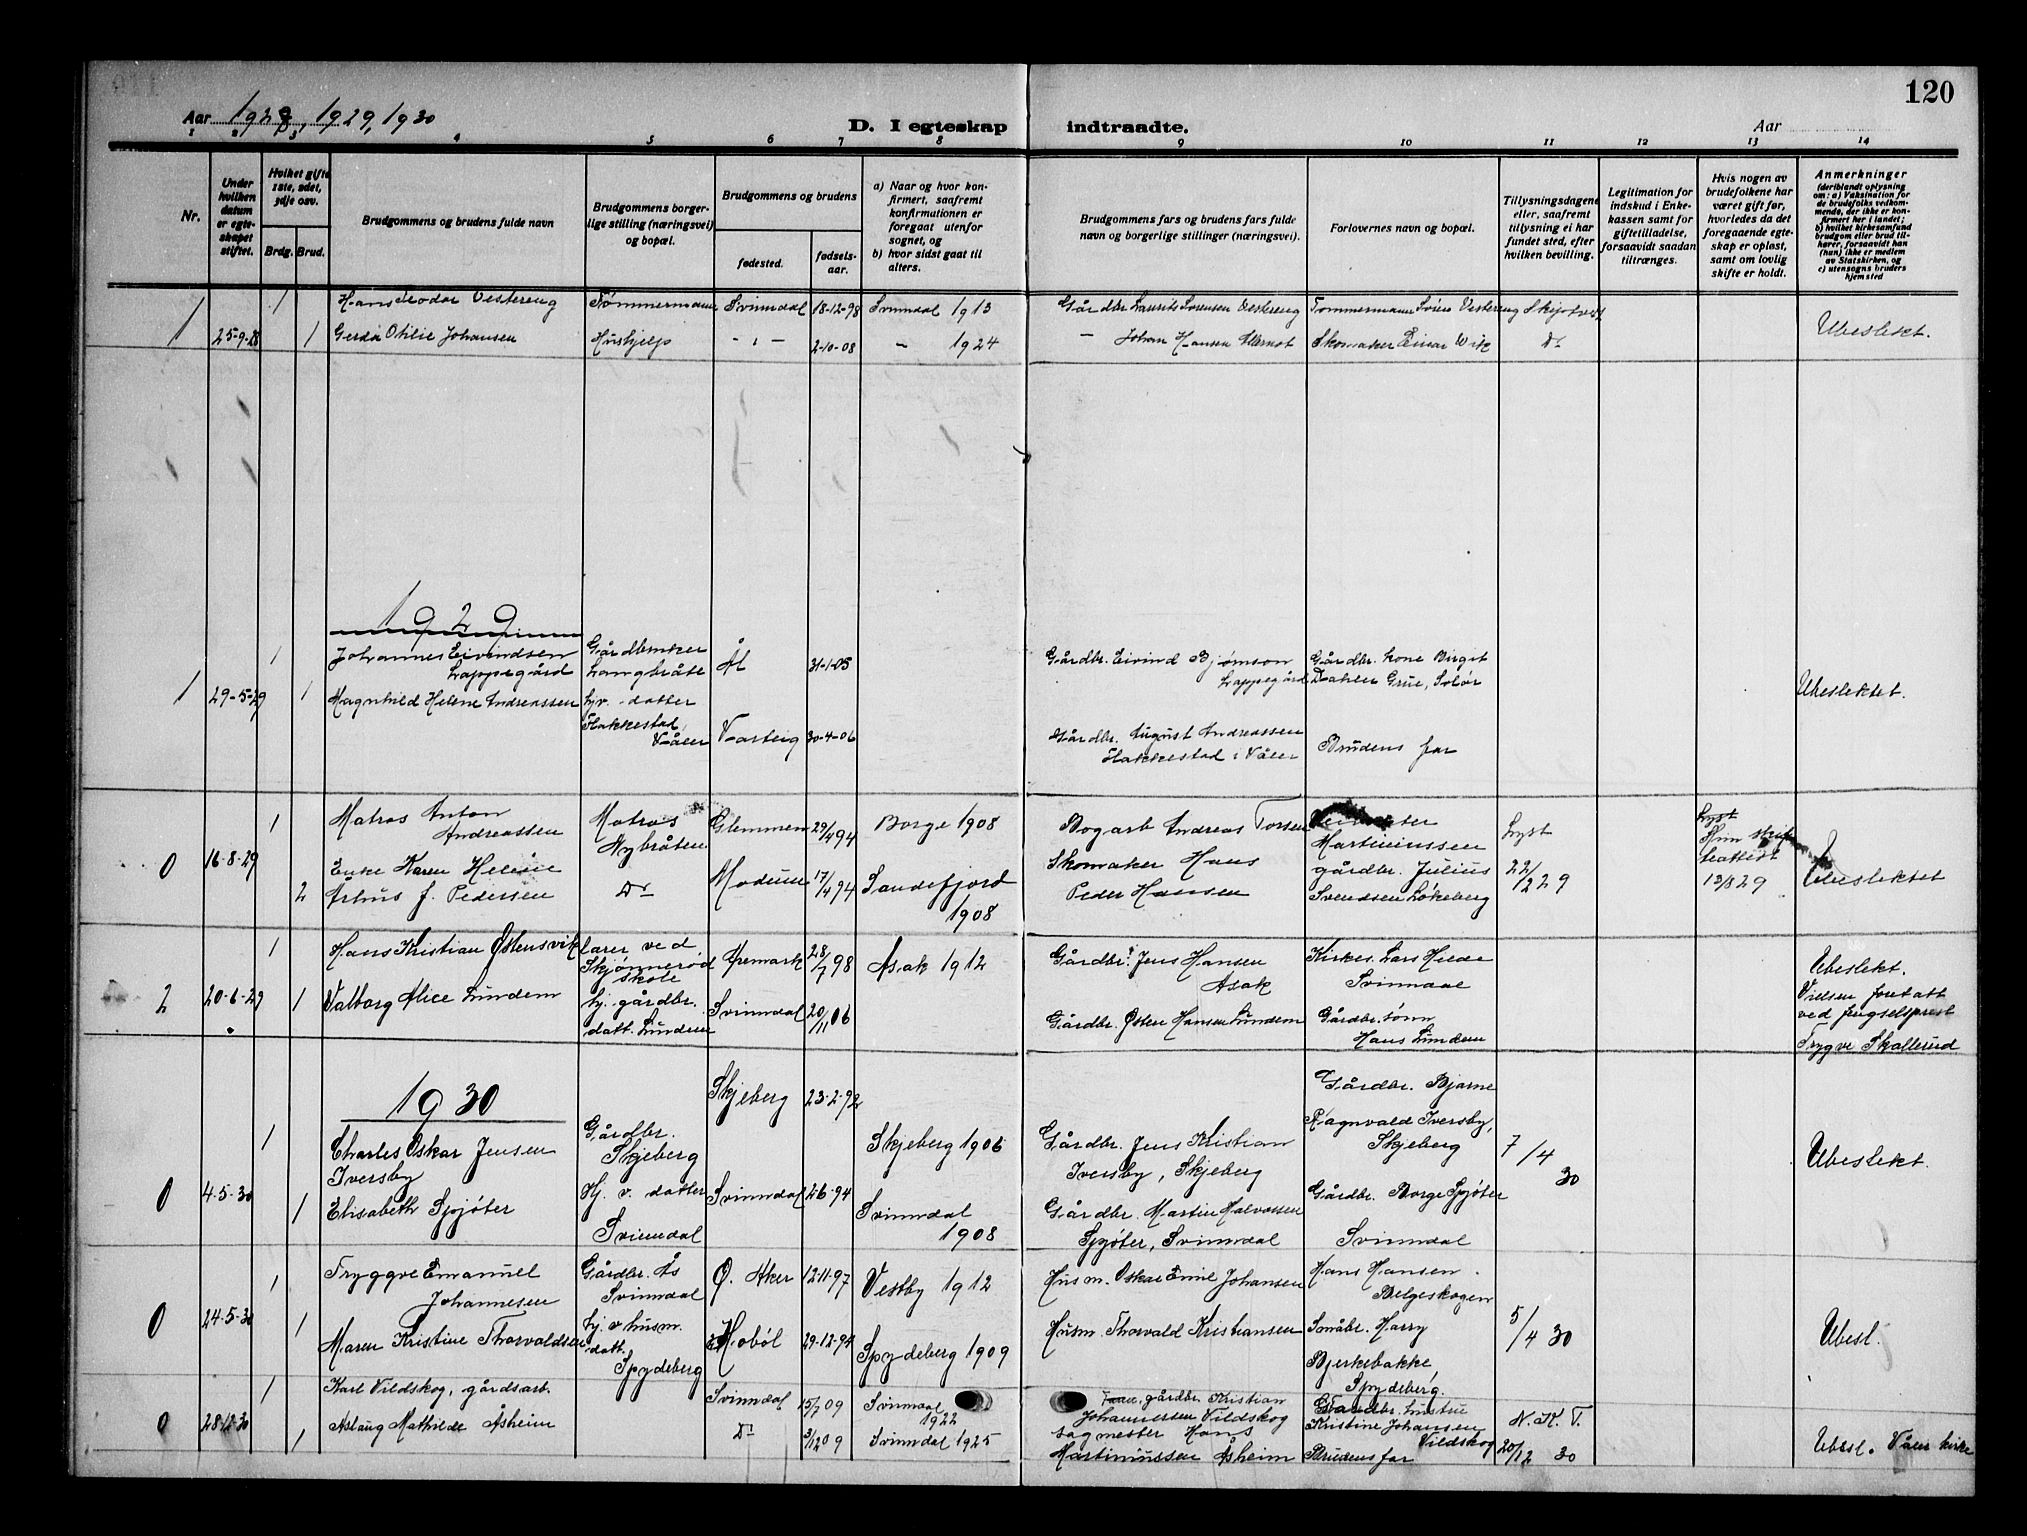 120
Aar 1928, 1929, 1930
D. I egteskap indtraadte.
Aar
1 2 3 4 5 6 7 8 9 10 11 12 13 14
Nr.
Under hvilken datum er egteskapet stiftet.
Hvilket gifte 1ste, 2det, 3dje osv.
Brdg. Brud.
Brudgommens og brudens fulde navn
Brudgommens borgerlige stilling (næringsvei) og bopæl.
Brudgommens og brudens
fødested.
fødselsaar.
a) Naar og hvor konfirmert, saafremt konfirmationen er foregaat utenfor sognet, og
b) hvor sidst gaat til alters.
Brudgommens fars og brudens fars fulde navn og borgerlige stillinger (næringsvei).
Forlovernes navn og bopæl.
Tillysningsdagene eller, saafremt tillysning ei har fundet sted, efter hvilken bevilling.
Legitimation for indskud i Enkekassen samt for giftetilladelse, forsaavidt saadan tiltrænges.
Hvis nogen av brudefolkene har været gift før, hvorledes da det foregaaende egteskap er opløst, samt om lovlig skifte er holdt.
Anmerkninger
(deriblandt oplysning om: a) Vaksination for de brudefolks vedkommende, der ikke er konfirmert her i landet; b) hvilket kirkesamfund brudgom eller brud tilhører, forsaavidt han (hun) ikke er medlem av Statskirken, og c) utensogns bruders hjemsted
1 25-9-28
1 Hans Teodor Vestereng Tømmermann Svinndal 18-12-98 Svinndal 1913 Gårdbr. Laurits Sørensen Vestereng Tømmermann Vestereng
1 Gerda Otilie Johansen Hushjelp - " - 2-10-08 - 1924 - Johan Hansen Skomaker Einar Do
Ubeslekt.
1929
1 29-5-29
1 Johannes Eivindsen Lappegård Gårdbruker Langbråte Ål 31-1-05 Gårdbr. Eivind Bjørnson Lappegård Gårdbr. kone Birgit Grue, Solør
1 Magnhild Helene Andreassen hjv. datter Flakkestad, Våler Varteig 30-4-06 Gårdbr. August Andreassen Flakkestad i Våler Brudens far
Ubeslektet.
0 16-8-29
1 Matros Anton Andreassen Matros Nybråten Glemmen 29/4 94 Borge 1908 Andreas Torsen Martiniussen Lyst
2 Enke Karen Helene Århus f. Pedersen Do Modum 17/4 94 Sandefjord 1908 Skomaker Hans Peder Hansen gårdbr. Julius Svendsen Løkeberg 22/2 29
Lyst 13/8 29
Ubeslektet
2 20-6-29
1 Hans Kristian Østensvik lærer ved Skjønnerød skole Aremark 28/7 98 Asak 1912 Gårdbr. Jens Hansen Asak Kirkes. Lars Hilde Svinndal
1 Valborg Alice Lundem hj. gårdbr. datt. Lundem Svinndal 20/11 06 Gårdbr. Østen Hansen Lundem Gårdbr. sønn Hans Lundem
Ubeslekt.
Vielsen foretatt
ved fengselsprest
Trygve Skallerud
1930
0 4-5-30
1 Charles Oskar Jensen Iversby Gårdbr. Skjeberg Skjeberg 23-2-92 Skjeberg 1906 Gårdbr. Jens Kristian Iversby, Skjeberg Gårdbr. Bjarne Ragnvald Iversby, Skjeberg 7/4 30
1 Elisabeth Spjøter Hj. v. datter Svinndal Svinndal 26-94 Svinndal 1908 Gårdbr. Martin Halvorsen Spjøter, Svinndal Gårdbr. Borge Spjøter Svinndal
Ubeslekt.
0 24-5-30
1 Tryggve Emanuel Johannesen Gårdbr. Ås Svinndal Ø. Aker 12-11-97 Vestby 1912 Husm. Oskar Emil Johansen Hans Hansen Belgeskogen
1 Maren Kristine Thorvaldsen hj. v. husm. datt. Spydeberg Hobøl 29-12-94 Spydeberg 1909 Husm. Thorvald Kristiansen Småbr. Harry Bjerkebakke Spydeberg. 5/4 30
Ubesl.
0 28-12-30
1 Karl Vildskog, gårdsarb. Svinndal 15/7 09 Svinndal 1922 gårdbr. Kristian Johannessen Vildskog Gårdbr. hustru Kristine Johansen Vildskog N. K. T.
1 Aslaug Mathilde Åsheim Do 3/12 09 Svinndal 1925 sagmester Hans Martiniussen Åsheim Brudens far 20/12 30
Ubesl. Våler kirke